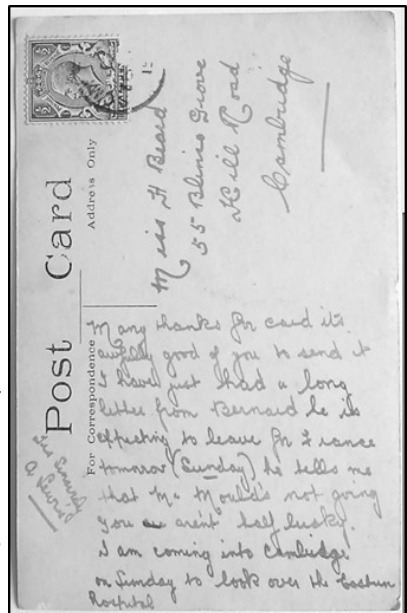 Post Card
For Correspondence
Address Only
Miss H Beard
55 Blinco Grove
Hill Road
Cambridge
Many thanks for card its
awfully good of you to send it
I have just had a long
letter from Bernard he is
expecting to leave for France
tomorrow (Sunday) he tells me
that Mr Mould's not going
you arent half lucky.
I am coming into Cambridge
on Sunday to look over the Eastern
Hospital
Sincerely
A Lewis